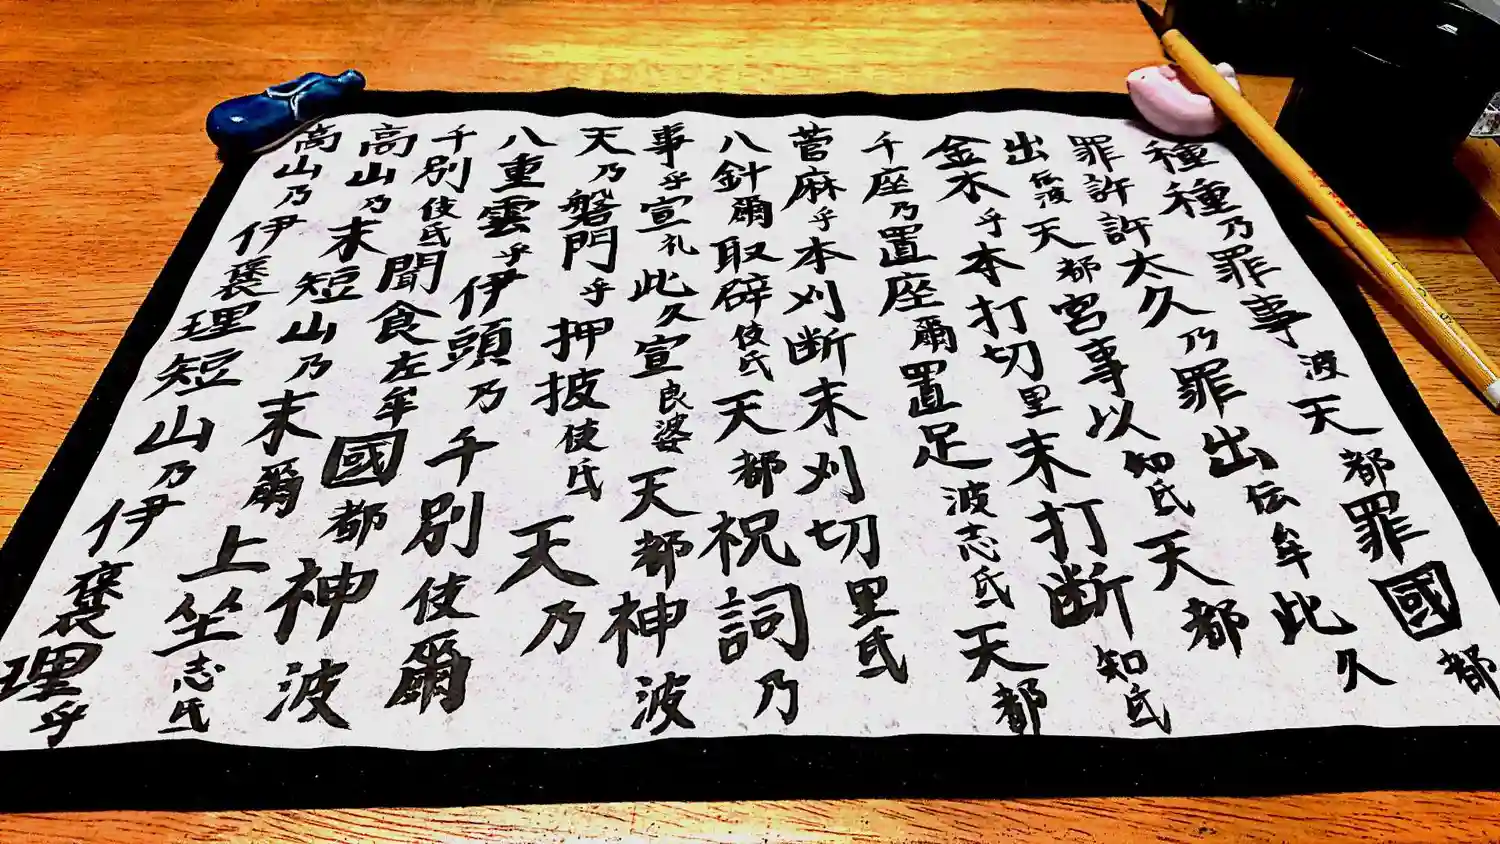 種種乃罪事波天都罪國都
罪許許太久乃罪出伝牟此久
出伝波天都宮事以知氐天都
金木乎本打切里末打断知氐
千座乃置座爾置足波志氐天都
菅麻乎本刈断末刈切里氐
八針爾取辟伎氐天都祝詞乃
事乎宣礼此久宣良婆天都神波
天乃磐門乎押披伎氐天乃
八重雲乎伊頭乃千別伎爾
千別伎氐聞食左牟國都神波
高山乃末短山乃末爾上坐志氐
高山乃伊褒理短山乃伊褒理乎